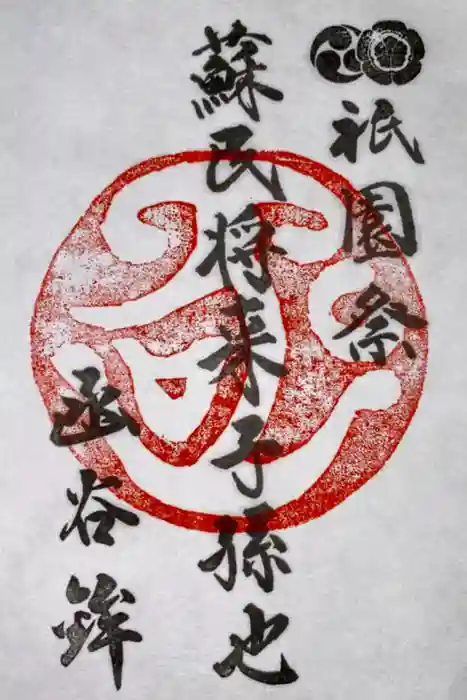 祇園祭
蘇民将来子孫也
函谷鉾